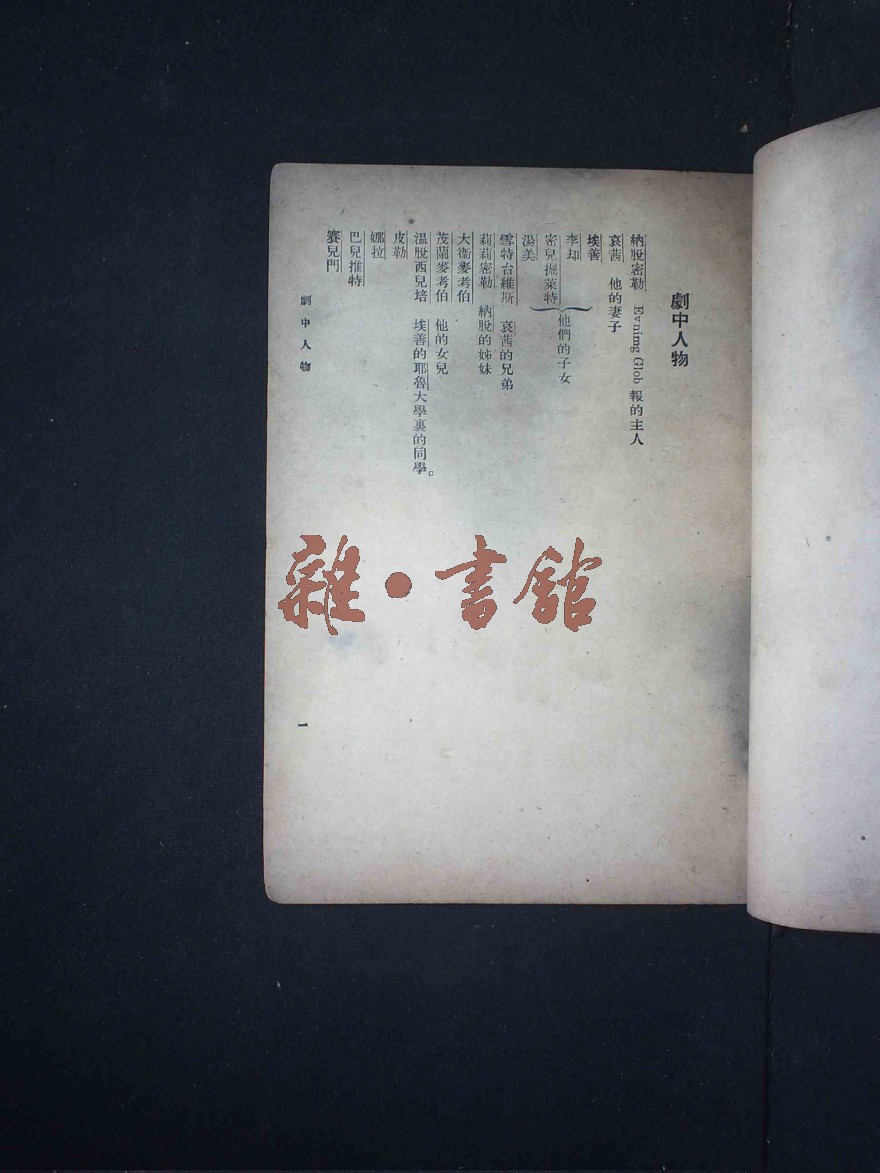 劇中人物
納脫密勒　Evnimg Glob 報的主人
哀茜　他的妻子
埃善
李却
密兒掘萊特
湯美
他們的子女
雪特台維斯　哀茜的兄弟
莉莉密勒　納脫的姊妹
大衞麥考伯
茂蘭麥考伯　他的女兒
溫脫西兒培　埃善的耶魯大學裏的同學。
皮勒
娜拉
巴兒推特
賽兒門
劇中人物
一
雜·書館